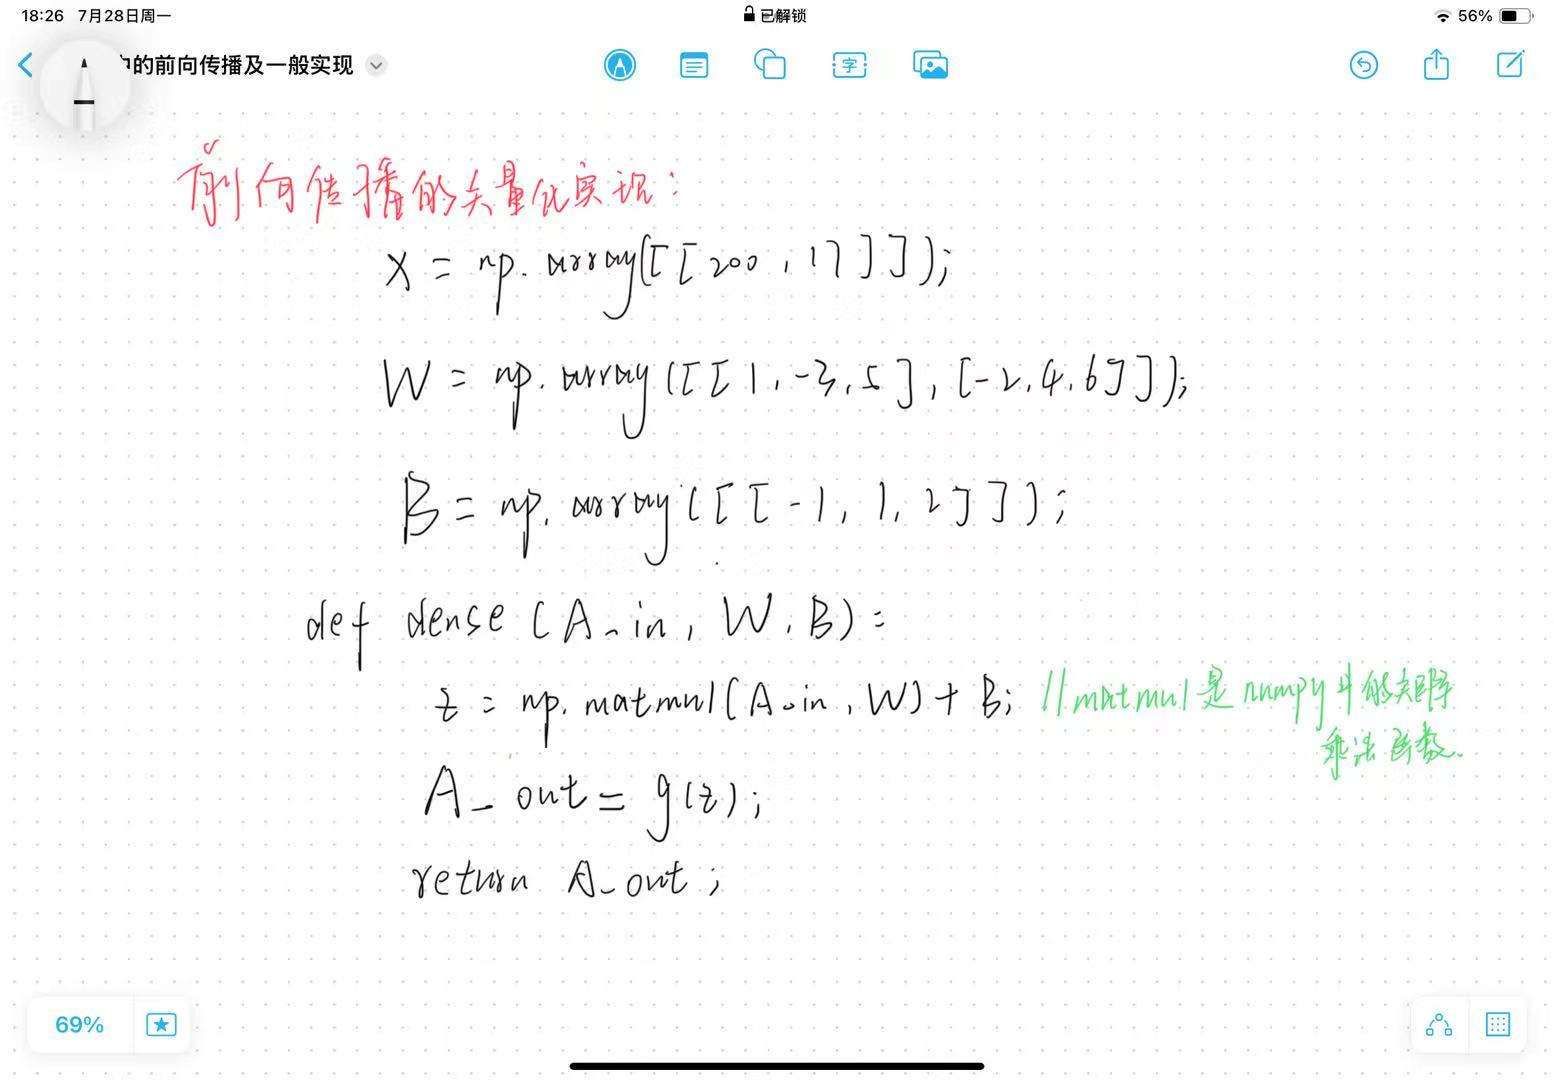 18:26 7月28日周一
已解锁
56%
中的前向传播及一般实现
字
前向传播的矢量化实现:
X = np.array([[200,17]]);
W = np.array([[1,-3,5],[-2,4,6]]);
B = np.array([[-1,1,2]]);
def dense(A_in, W, B):
z = np.matmul(A_in, W) + B; //matmul是numpy中的矩阵
乘法函数.
A_out = g(z);
return A_out;
69%